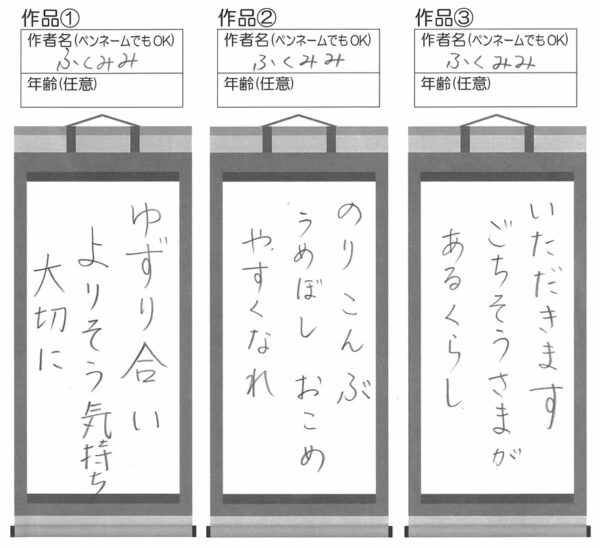 作品①
作者名(ペンネームでもOK)
ふくみみ
年齢(任意)
ゆずり合い
よりそう気持ち
大切に
作品②
作者名(ペンネームでもOK)
ふくみみ
年齢(任意)
のりこんぶ
うめぼし おこめ
やすくなれ
作品③
作者名(ペンネームでもOK)
ふくみみ
年齢(任意)
いただきます
ごちそうさまが
あるくらし